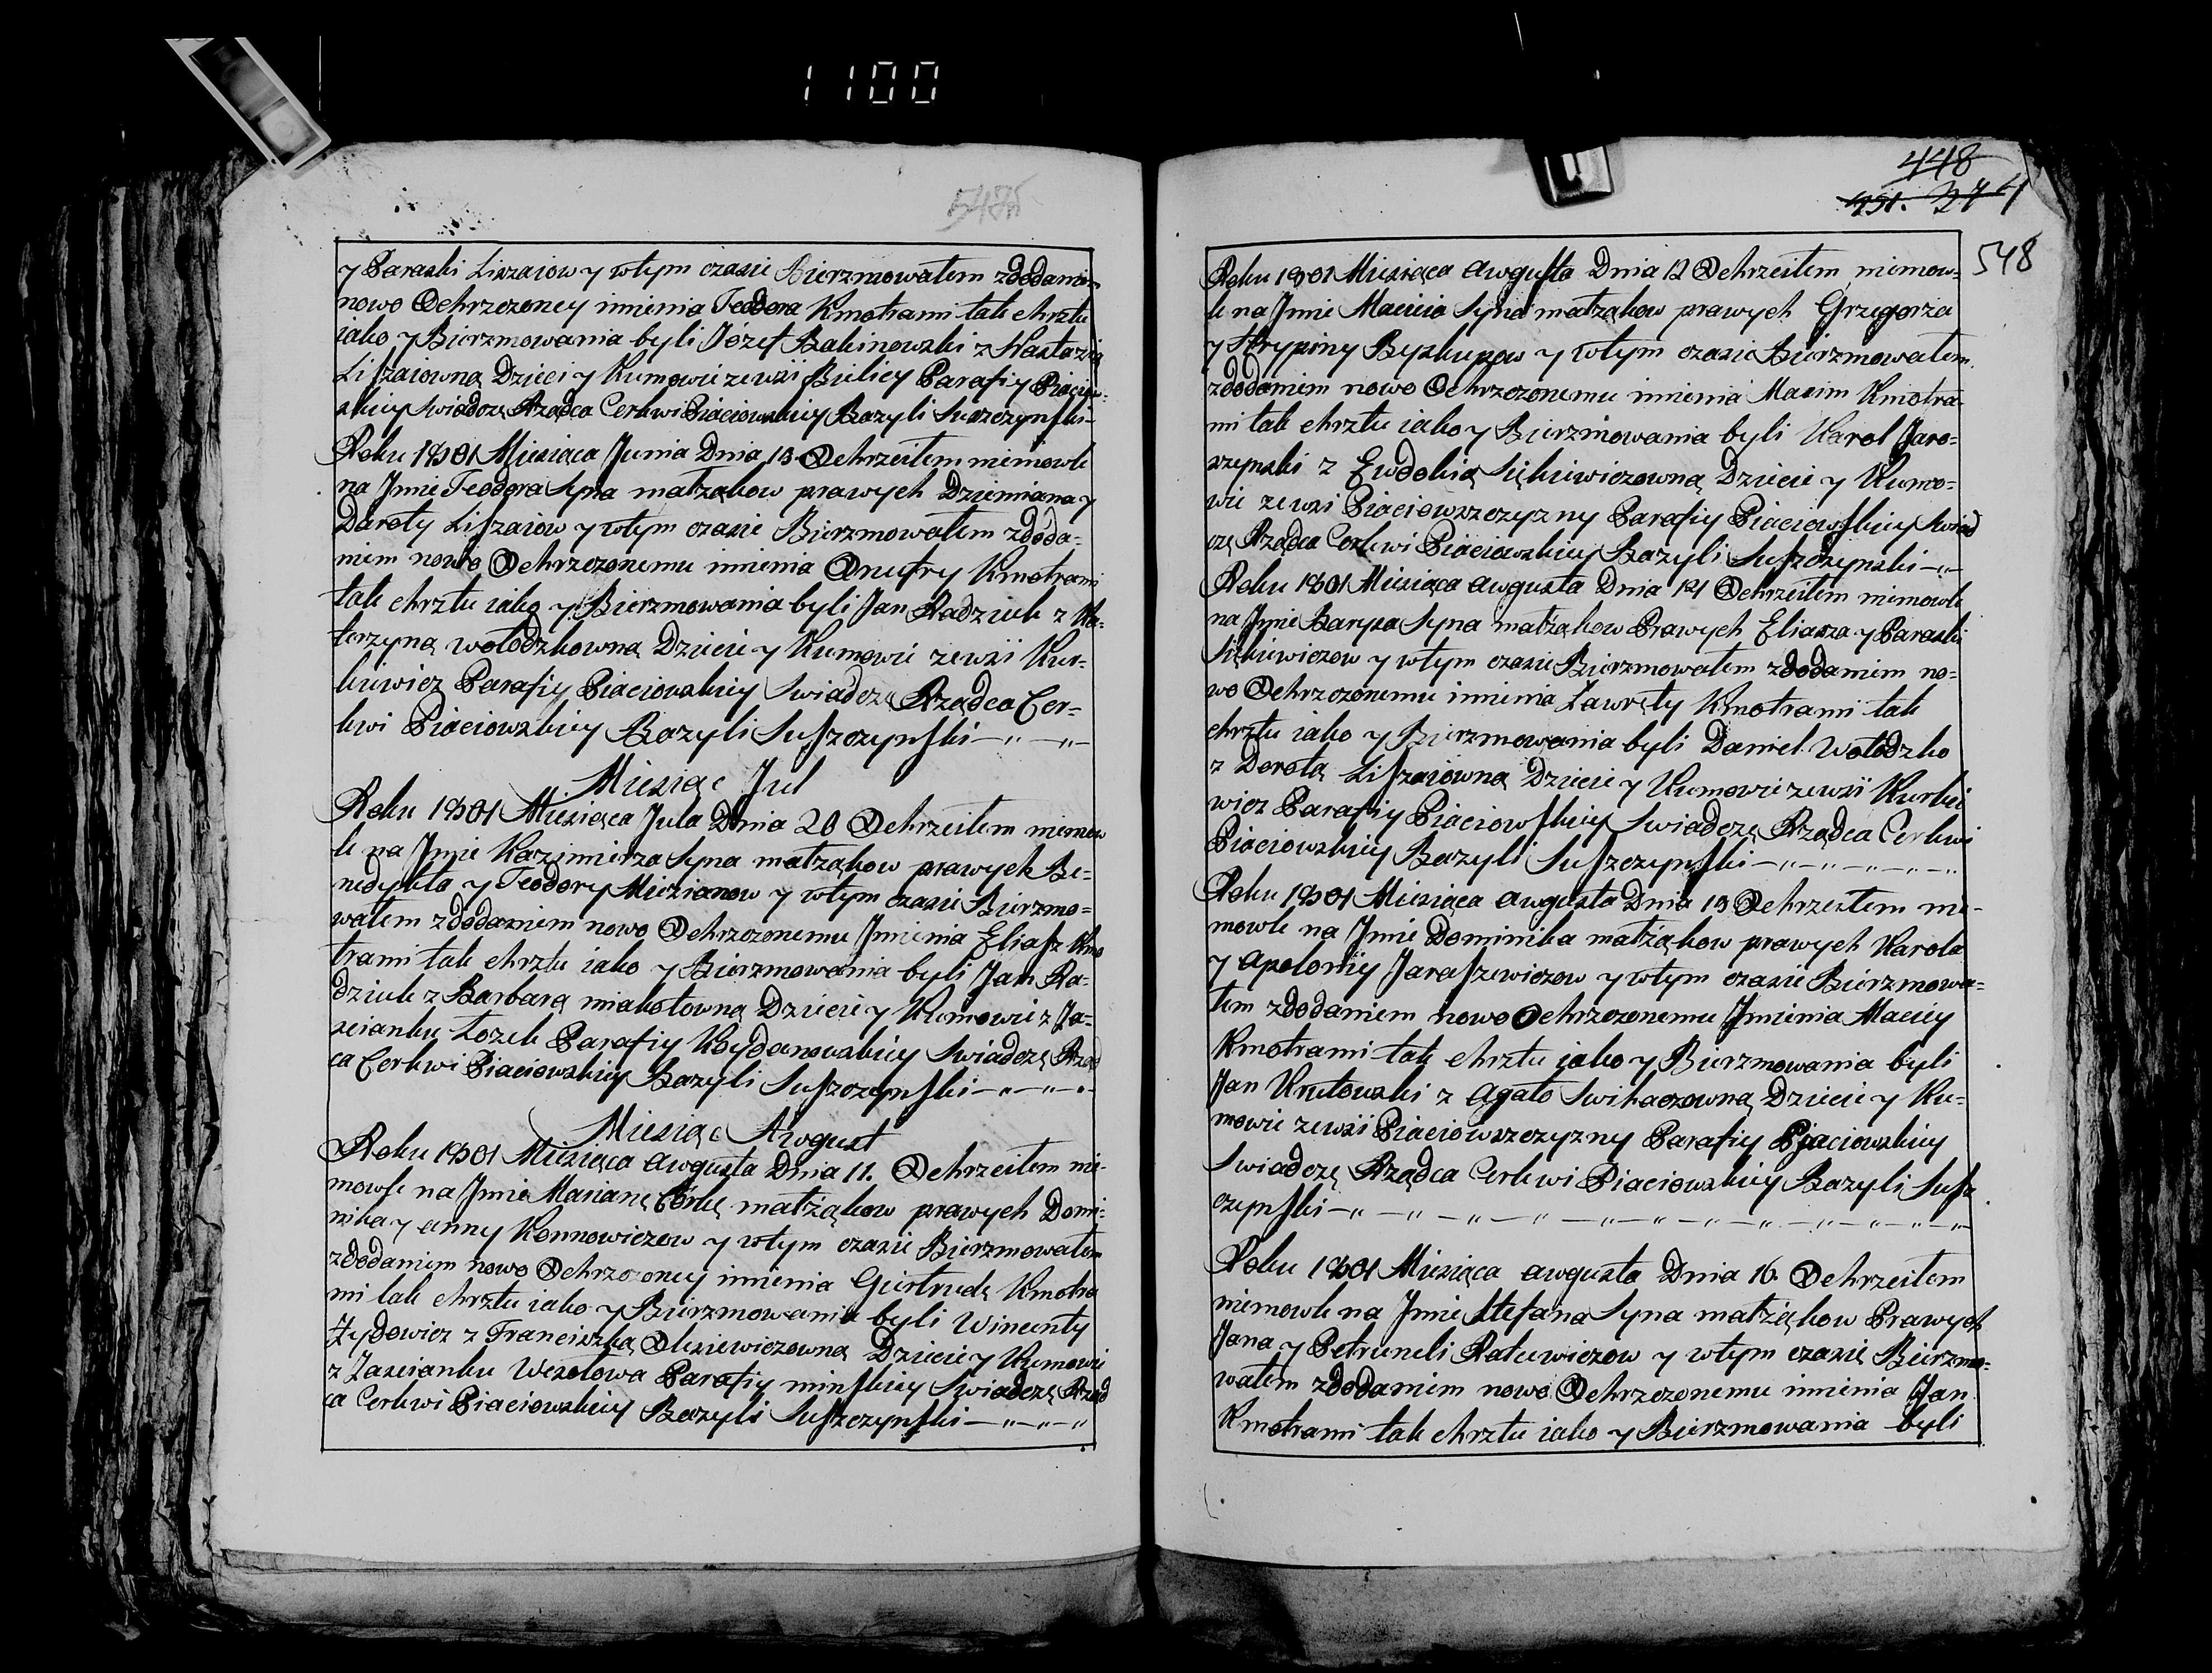 1100
547
y Paraski Liszaiow y wtym czasie Bierzmowałem zdodaniem
nowo Ochrzczoney imienia Teodora Kmotrami tak chrztu
iako y Bierzmowania byli Józef Balinowski z Nastazią
Liszaiowną Dzieci y Kumowie zewsi Bielicy Parafiy Piaciow-
skiey Swiadczę Rządca Cerkwi Piaciowskiey Bazyli Suszczynski
Roku 1801 Miesiąca Junia Dnia 13 Ochrzciłem niemowle
na Jmie Teodora Syna małżąkow prawych Dziemiana y
Daroty Liszaiow y wtym czasie Bierzmowałem zdoda-
niem nowo Ochrzczonemu imienia Onufry Kmotrami
tak chrztu iako y Bierzmowania byli Jan Radziuk z Ka-
terzyną wołodzkowną Dziecie y Kumowie zewsi Kur-
kiewicz Parafiy Piaciowskiey Swiadczę Rządca Cer-
kwi Piaciowskiey Bazyli Suszczynski
Miesiąc Jul
Roku 1801 Miesiąca Jula Dnia 20 Ochrzciłem niemow
le na Jmie Kazimierza Syna małżąkow prawych Be-
nedykta y Teodory Miezianow y wtym czasie Bierzmo-
wałem zdodaniem nowo Ochrzczonemu Jmienia Eliasz Kmo
trami tak chrztu iako y Bierzmowania byli Jan Ra-
dziuk z Barbarą miakotowną Dziecie y Kumowie z Za-
scianku Łozek Parafiy Koydanowskiey Swiadczę Rząd
ca Cerkwi Piaciowskiey Bazyli Suszczynski
Miesiąc Awgust
Roku 1801 Miesiąca awgusta Dnia 11. Ochrzciłem nie-
mowle na Jmie Marianę Corkę małżąkow prawych Domi-
nika y anny Konnowiczow y wtym czasie Bierzmowałem
zdodaniem nowo Ochrzczoney imienia Giertrudę Kmotra
mi tak chrztu iako y Bierzmowania byli Wincenty
Zydowicz z Franciszką Olesiewiczowną Dziecie y Kumowie
z Zascianku Wesołowa Parafiy minskiey Swiadczę Rząd
ca Cerkwi Piaciowskiey Bazyli Suszczynski
448
274
548
Roku 1801 Miesiąca awgusta Dnia 12 Ochrzciłem niemow-
le na Jmie Macieia Syna małżąkow prawych Grzegorza
y Akrypiny Byskupow y wtym czasie Bierzmowałem
zdodaniem nowo Ochrzczonemu imienia Maxim Kmotra-
mi tak chrztu iako y Bierzmowania byli Karol Jaro-
szynski z Ewdokią Sickiewiczowną Dziecie y Kumo-
wie zewsi Piaciowszczyzny Parafiy Piaciowskiey Swiad
czę Rządca Cerkwi Piaciowskiey Bazyli Suszczynski
Roku 1801 Miesiąca awgusta Dnia 14 Ochrzciłem niemowle
na Jmie Barysa Syna małżąkow Prawych Eliasza y Paraski
Sickiewiczow y wtym czasie Bierzmowałem zdodaniem no-
wo Ochrzczonemu imienia Ławręty Kmotrami tak
chrztu iako y Bierzmowania byli Daniel Wołodzko
z Dorotą Liszaiowną Dziecie y Kumowie zewsii Kurkie
wicz Parafiy Piaciowskiey Swiadczę Rządca Cerkwi
Piaciowskiey Bazyli Suszczynski
Roku 1801 Miesiąca awgusta Dnia 15 Ochrzciłem nie-
mowle na Jmie Dominika małżąkow prawych Karola
y apoloniy Jaraszewiczow y wtym czasie Bierzmowa-
łem zdodaniem nowo Ochrzczonemu Jmienia Maciey
Kmotrami tak chrztu iako y Bierzmowania byli
Jan Krutowski z agato Swikaczowną Dziecie y Ku-
mowie zewsii Piaciowszczyzny Parafiy Piaciowskiey
Swiadczę Rządca Cerkwi Piaciowskiey Bazyli Susz
czynski
Roku 1801 Miesiąca awgusta Dnia 16 Ochrzciłem
niemowle na Jmie Stefana Syna małżąkow Prawych
Jana y Petruneli Ratuwiczow y wtym czasie Bierzmo-
wałem zdodaniem nowo Ochrzczonemu imienia Jan
Kmotrami tak chrztu iako y Bierzmowania byli